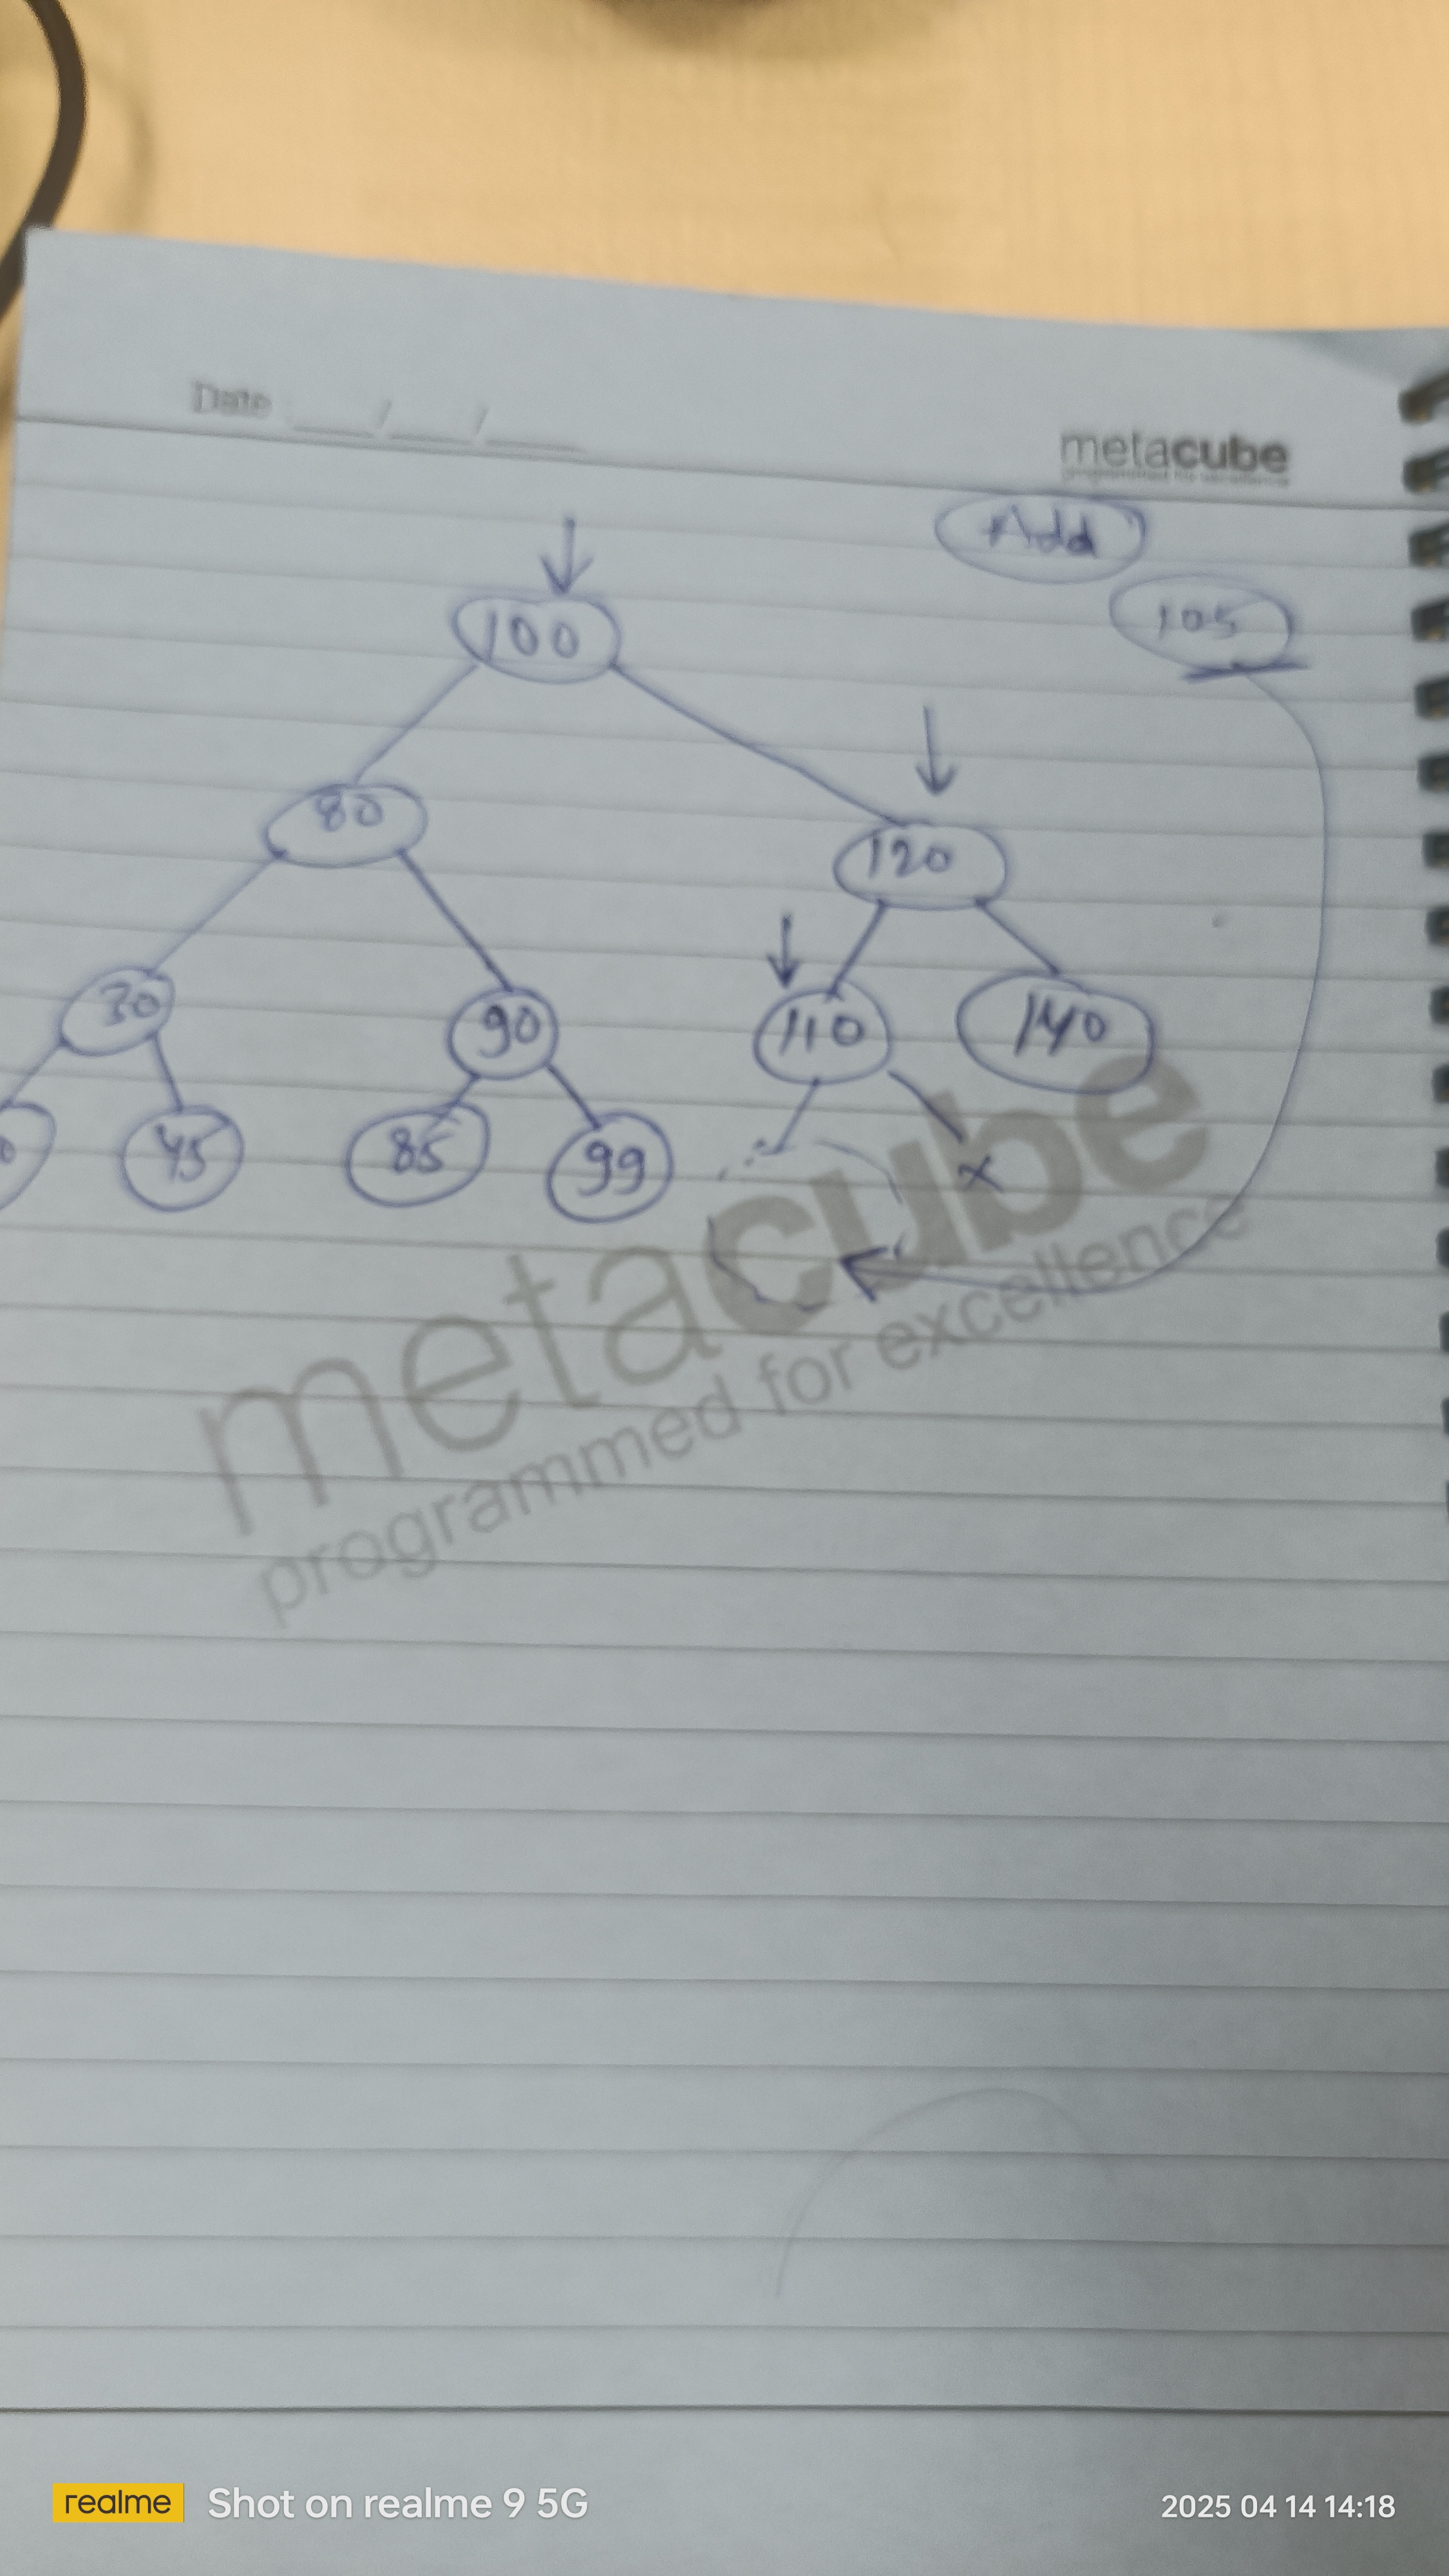 Date __/__/__
metacube
Add
105
100
80
120
30
90
110
140
45
85
99
x
metacube
programmed for excellence
realme Shot on realme 9 5G
2025 04 14 14:18